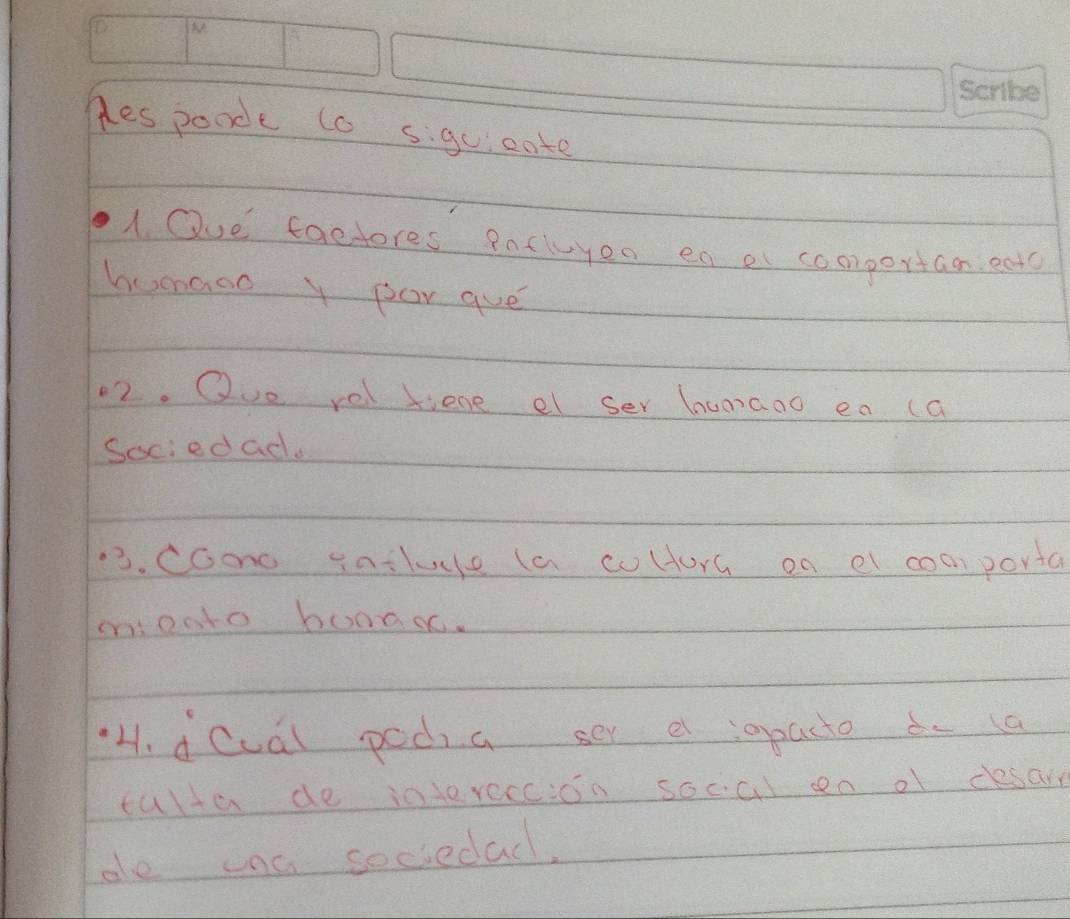 D M A
Scribe
Responde lo siguiente
•1. Qué factores influyen en el comportamiento
humano y por qué
•2. Que rol tiene el ser humano en la
sociedad.
•3. Como influye la cultura en el comporta
miento humano.
•4. ¿Cuál podria ser el impacto de la
falta de interacción social en el desarr
de una sociedad.